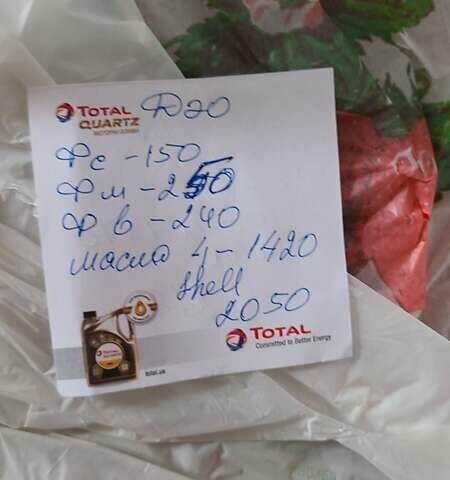 TOTAL Дэо
QUARTZ
Фс - 150
Фм - 250
Фв - 240
масло 4 - 1420
Shell
2050
TOTAL
Committed to Better Energy
TOTAL
total.ua